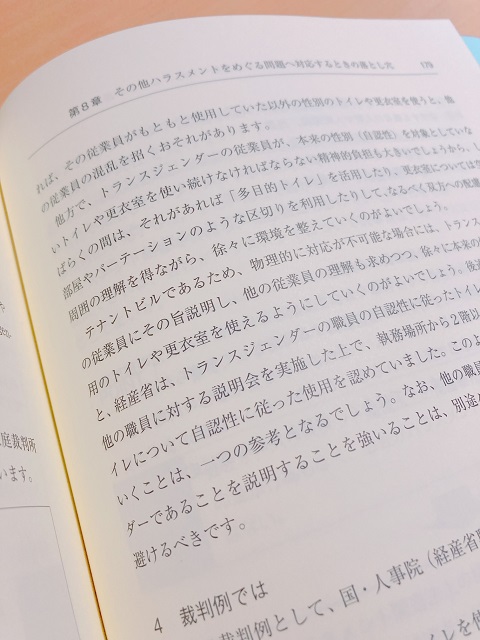 第8章　その他ハラスメントをめぐる問題へ対応するときの落とし穴　179
れば、その従業員がもともと使用していた以外の性別のトイレや更衣室を使うと、他
の従業員の混乱を招くおそれがあります。
他方で、トランスジェンダーの従業員が、本来の性別（自認性）を対象としていな
いトイレや更衣室を使い続けなければならない精神的負担も大きいでしょうから、し
ばらくの間は、それがあれば「多目的トイレ」を活用したり、更衣室については空
部屋やパーテーションのような区切りを利用したりして、なるべく双方への配慮
周囲の理解を得ながら、徐々に環境を整えていくのがよいでしょう。
テナントビルであるため、物理的に対応が不可能な場合には、トランス
の従業員にその旨説明し、他の従業員の理解も求めつつ、徐々に本来の
用のトイレや更衣室を使えるようにしていくのがよいでしょう。後
と、経産省は、トランスジェンダーの職員の自認性に従ったトイレ
他の職員に対する説明会を実施した上で、執務場所から2階以
イレについて自認性に従った使用を認めていました。このよ
いくことは、一つの参考となるでしょう。なお、他の職員
ダーであることを説明することを強いることは、別途
避けるべきです。
4　裁判例では
裁判例として、国・人事院（経産省
イレを使
庭裁判所
います。